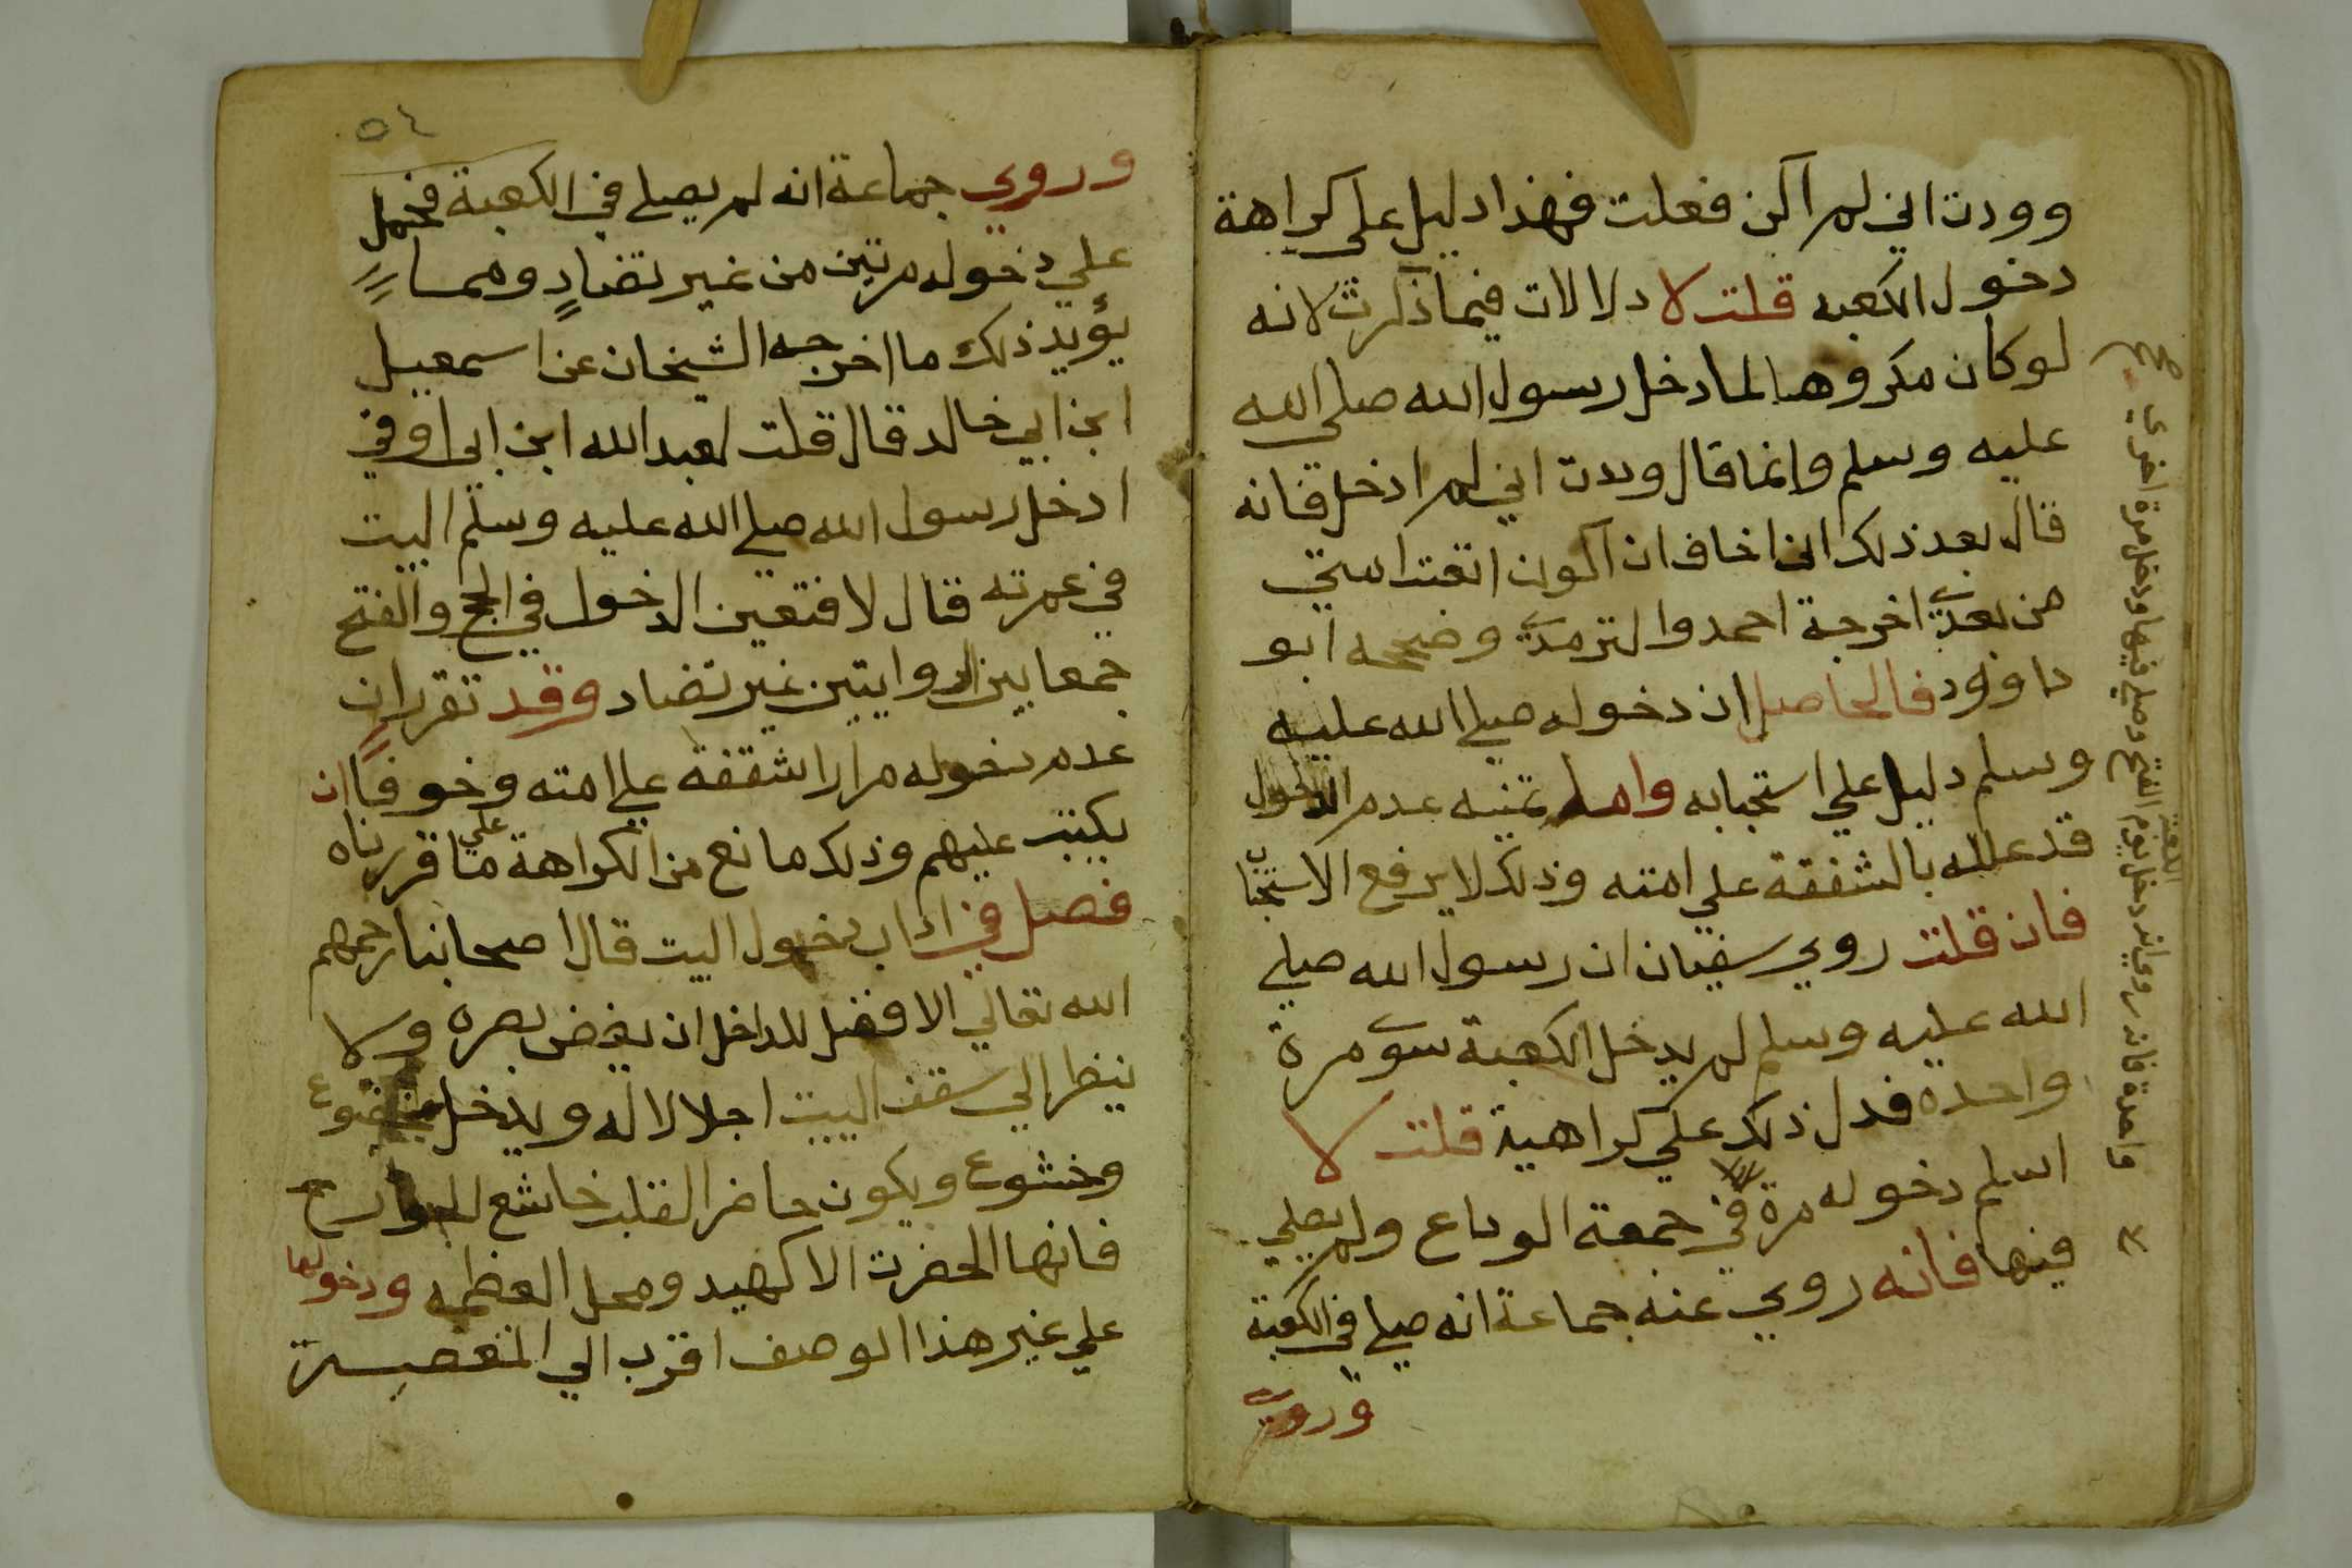 وودت اني لم اكن فعلت فهذا دليل علي كراهة
دخول الكعبه قلت لا دلالات فيما ذكرت لانه
لو كان مكروها لما دخل رسول الله صلي الله
عليه وسلم وانما قال وددت اني لم ادخل فانه
قال بعد ذلك اني اخاف ان اكون اتعبت امتي
من بعدي اخرجة احمد والترمذي وصححه ابو
داوود فالحاصل ان دخوله صلي الله عليه
وسلم دليل علي استحبابه واما تمنيه عدم الدخول
قد علله بالشفقة علي امته وذلك لا يرفع الاستحباب
فان قلت روي سفيان ان رسول الله صلي
الله عليه وسلم لم يدخل الكعبة سوي مرة
واحده فدل ذلك علي كراهية قلت لا
اسلم دخوله مرة في جمعة الوداع ولم يصلي
فيها فانه روي عنه جماعة انه صلي في الكعبة
وروي
واحدة فانه روي انه دخل يوم الفتح وصلي فيها ودخل مرة اخري
الكعبة
صح
٥٤
وروي جماعة انه لم يصلي في الكعبة فحمل
علي دخوله مرتين من غير تضادٍ ومما
يؤيد ذلك ما اخرجه الشيخان عن اسمعيل
ابن ابي خالد قال قلت لعبد الله ابن ابي اوفي
ادخل رسول الله صلي الله عليه وسلم البيت
في عمرته قال لا فتعين الدخول في الحج والفتح
جمعا بين الروايتين غير تضاد وقد تقرر ان
عدم دخوله مرارا شفقة علي امته وخوفا ان
يكتب عليهم وذلك مانع من الكراهة علي ما قررناه
فصل في اداب دخول البيت قال اصحابنا رحمهم
الله تعالي الافضل للداخل ان يغض بصره ولا
ينظر الي سقف البيت اجلالا له ويدخل بخضوع
وخشوع ويكون حاضر القلب خاشع الجوارح
فانها الحضرت الالهيه ومحل العظمه ودخولها
علي غير هذا الوصف اقرب الي المعصية